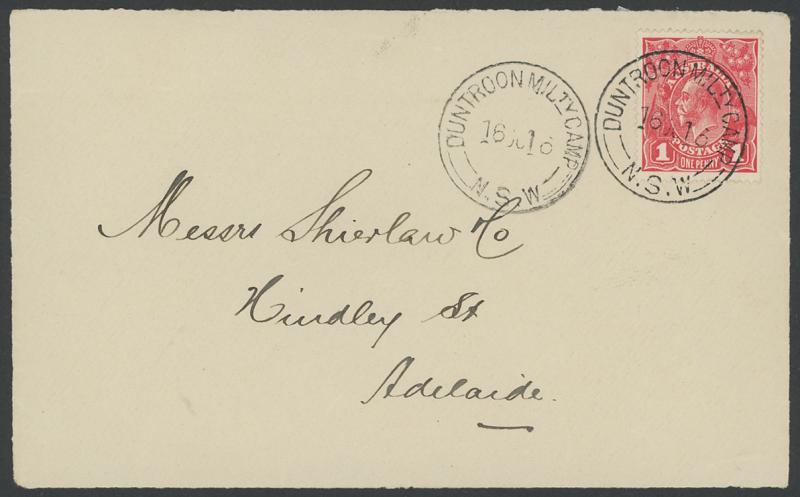 DUNTROON MILTY CAMP
16 JL 16
N.S.W
DUNTROON MILTY CAMP
16 JL 16
N.S.W
POSTAGE
1 ONE PENNY
Messrs Shierlaw Co
Hindley St
Adelaide.